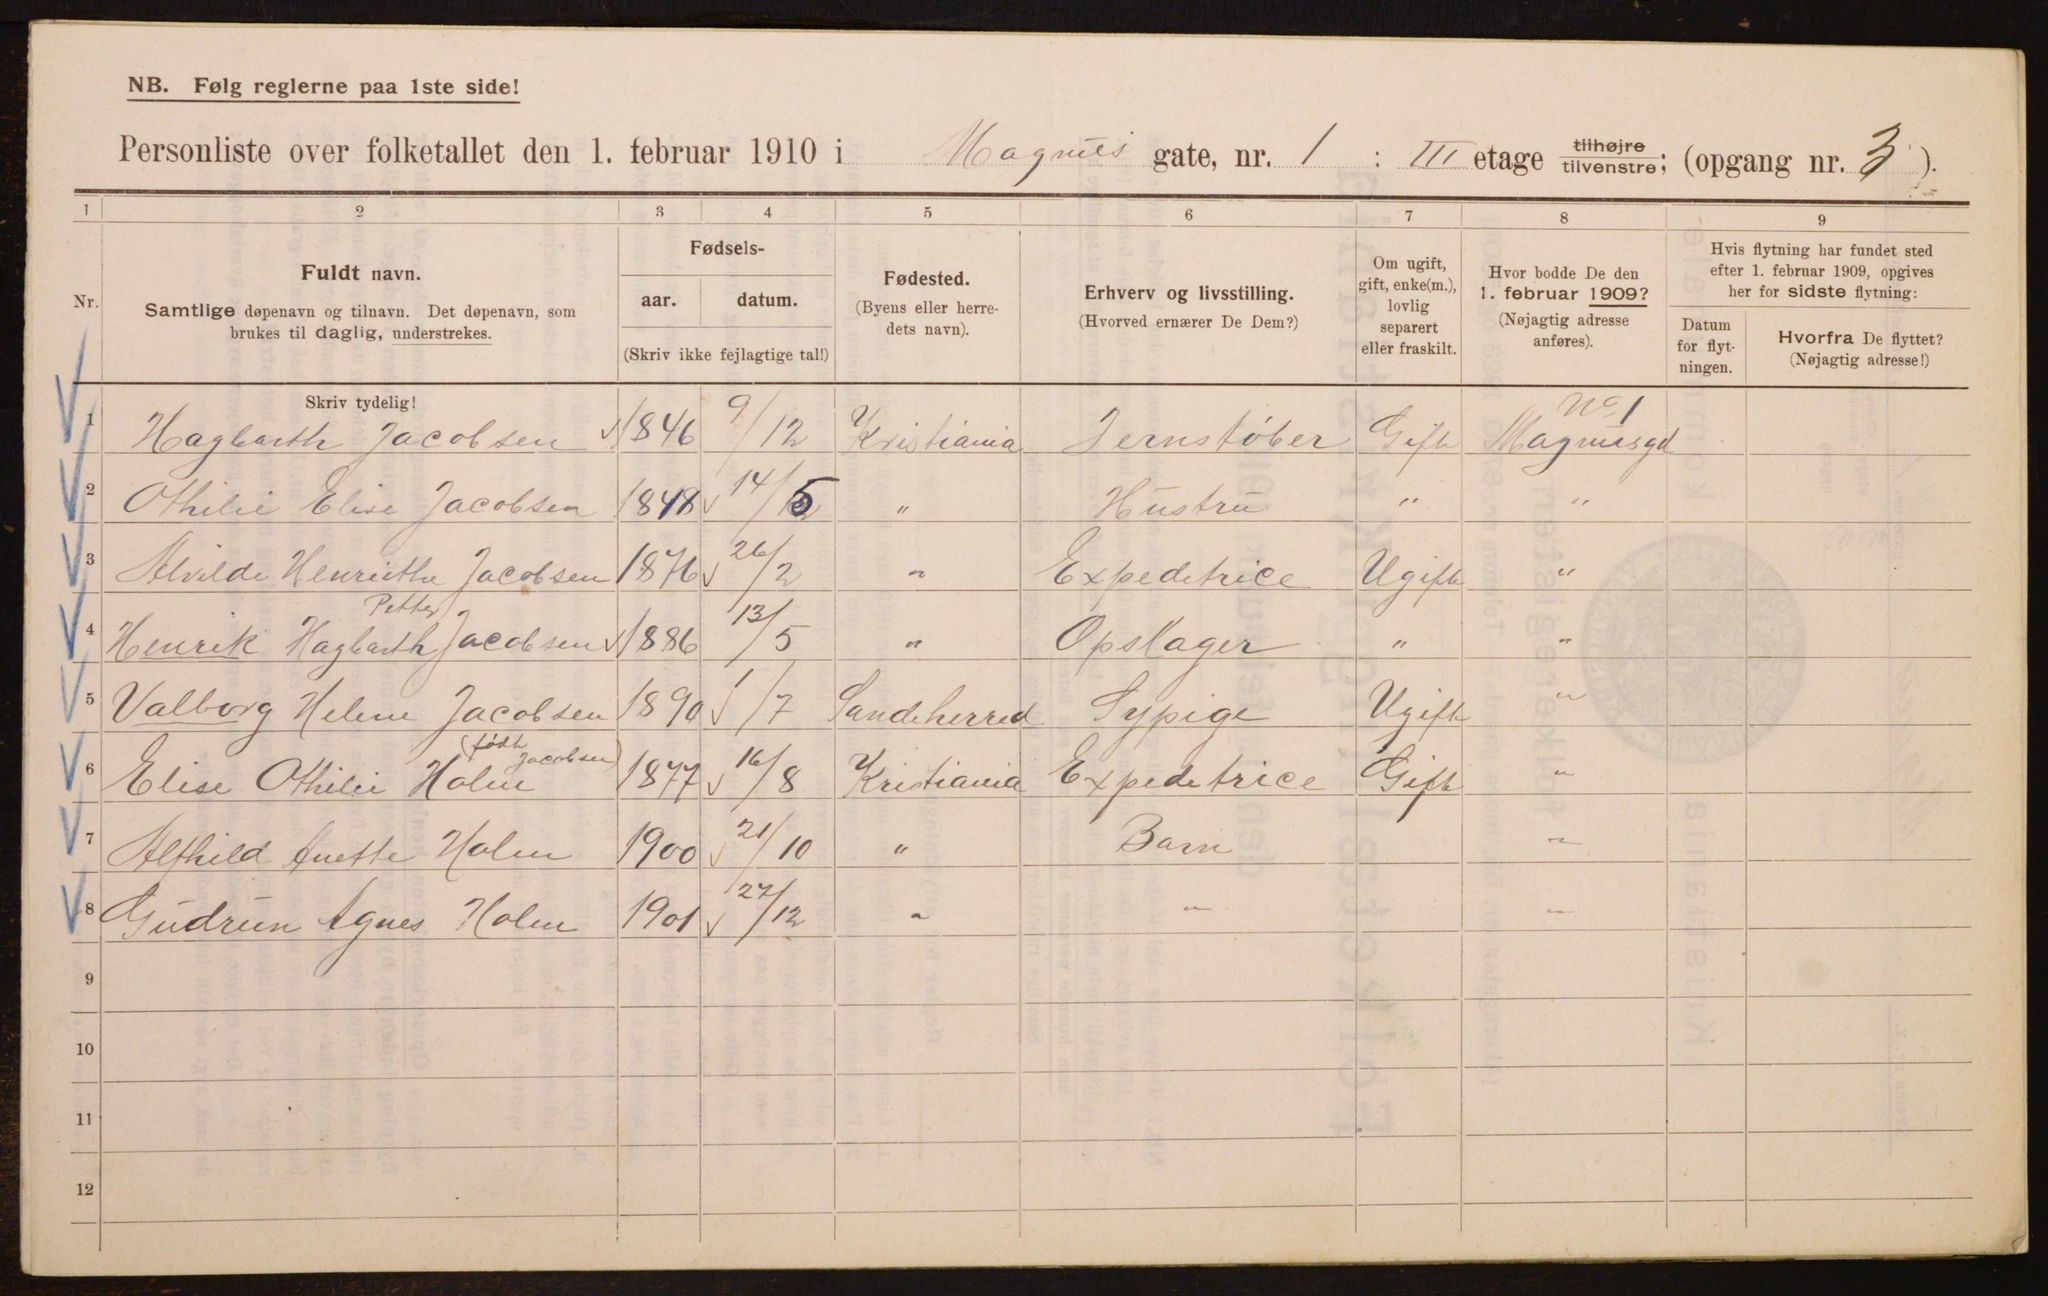 NB. Følg reglerne paa 1ste side!
Personliste over folketallet den 1. februar 1910 i Magnus gate, nr. 1 : III etage tilhøjre tilvenstre; (opgang nr. 3).
1 2 3 4 5 6 7 8 9
Nr.
Fuldt navn.
Samtlige døpenavn og tilnavn. Det døpenavn, som
brukes til daglig, understrekes.
Fødsels-
aar. datum.
(Skriv ikke fejlagtige tal!)
Fødested.
(Byens eller herre-
dets navn).
Erhverv og livsstilling.
(Hvorved ernærer De Dem?)
Om ugift,
gift, enke(m.),
lovlig
separert
eller fraskilt.
Hvor bodde De den
1. februar 1909?
(Nøjagtig adresse
anføres).
Hvis flytning har fundet sted
efter 1. februar 1909, opgives
her for sidste flytning:
Datum
for flyt-
ningen.
Hvorfra De flyttet?
(Nøjagtig adresse!)
Skriv tydelig!
No 1
1 Hagbarth Jacobsen 1846 9/12 Kristiania Jernstøber Gift Magnusgd
2 Othilie Elise Jacobsen 1848 14/5 " Hustru " "
3 Alvilde Henriette Jacobsen 1876 26/2 " Expeditrice Ugift "
Petter
4 Henrik Hagbarth Jacobsen 1886 13/5 " Opslager " "
5 Valborg Helene Jacobsen 1890 1/7 Sandeherred Sypige Ugift "
(født Jacobsen)
6 Elise Othilie Holm 1877 16/8 Kristiania Expeditrice Gift "
7 Alfhild Anette Holm 1900 21/10 " Barn "
8 Gudrun Agnes Holm 1901 27/12 " " "
9
10
11
12